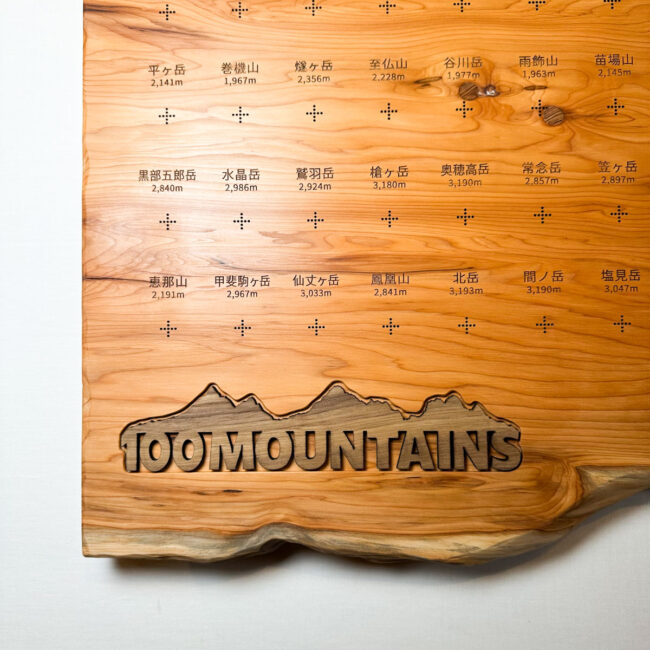 平ヶ岳 巻機山 燧ヶ岳 至仏山 谷川岳 雨飾山 苗場山
2,141m 1,967m 2,356m 2,228m 1,977m 1,963m 2,145m
黒部五郎岳 水晶岳 鷲羽岳 槍ヶ岳 奥穂高岳 常念岳 笠ヶ岳
2,840m 2,986m 2,924m 3,180m 3,190m 2,857m 2,897m
恵那山 甲斐駒ヶ岳 仙丈ヶ岳 鳳凰山 北岳 間ノ岳 塩見岳
2,191m 2,967m 3,033m 2,841m 3,193m 3,190m 3,047m
100MOUNTAINS